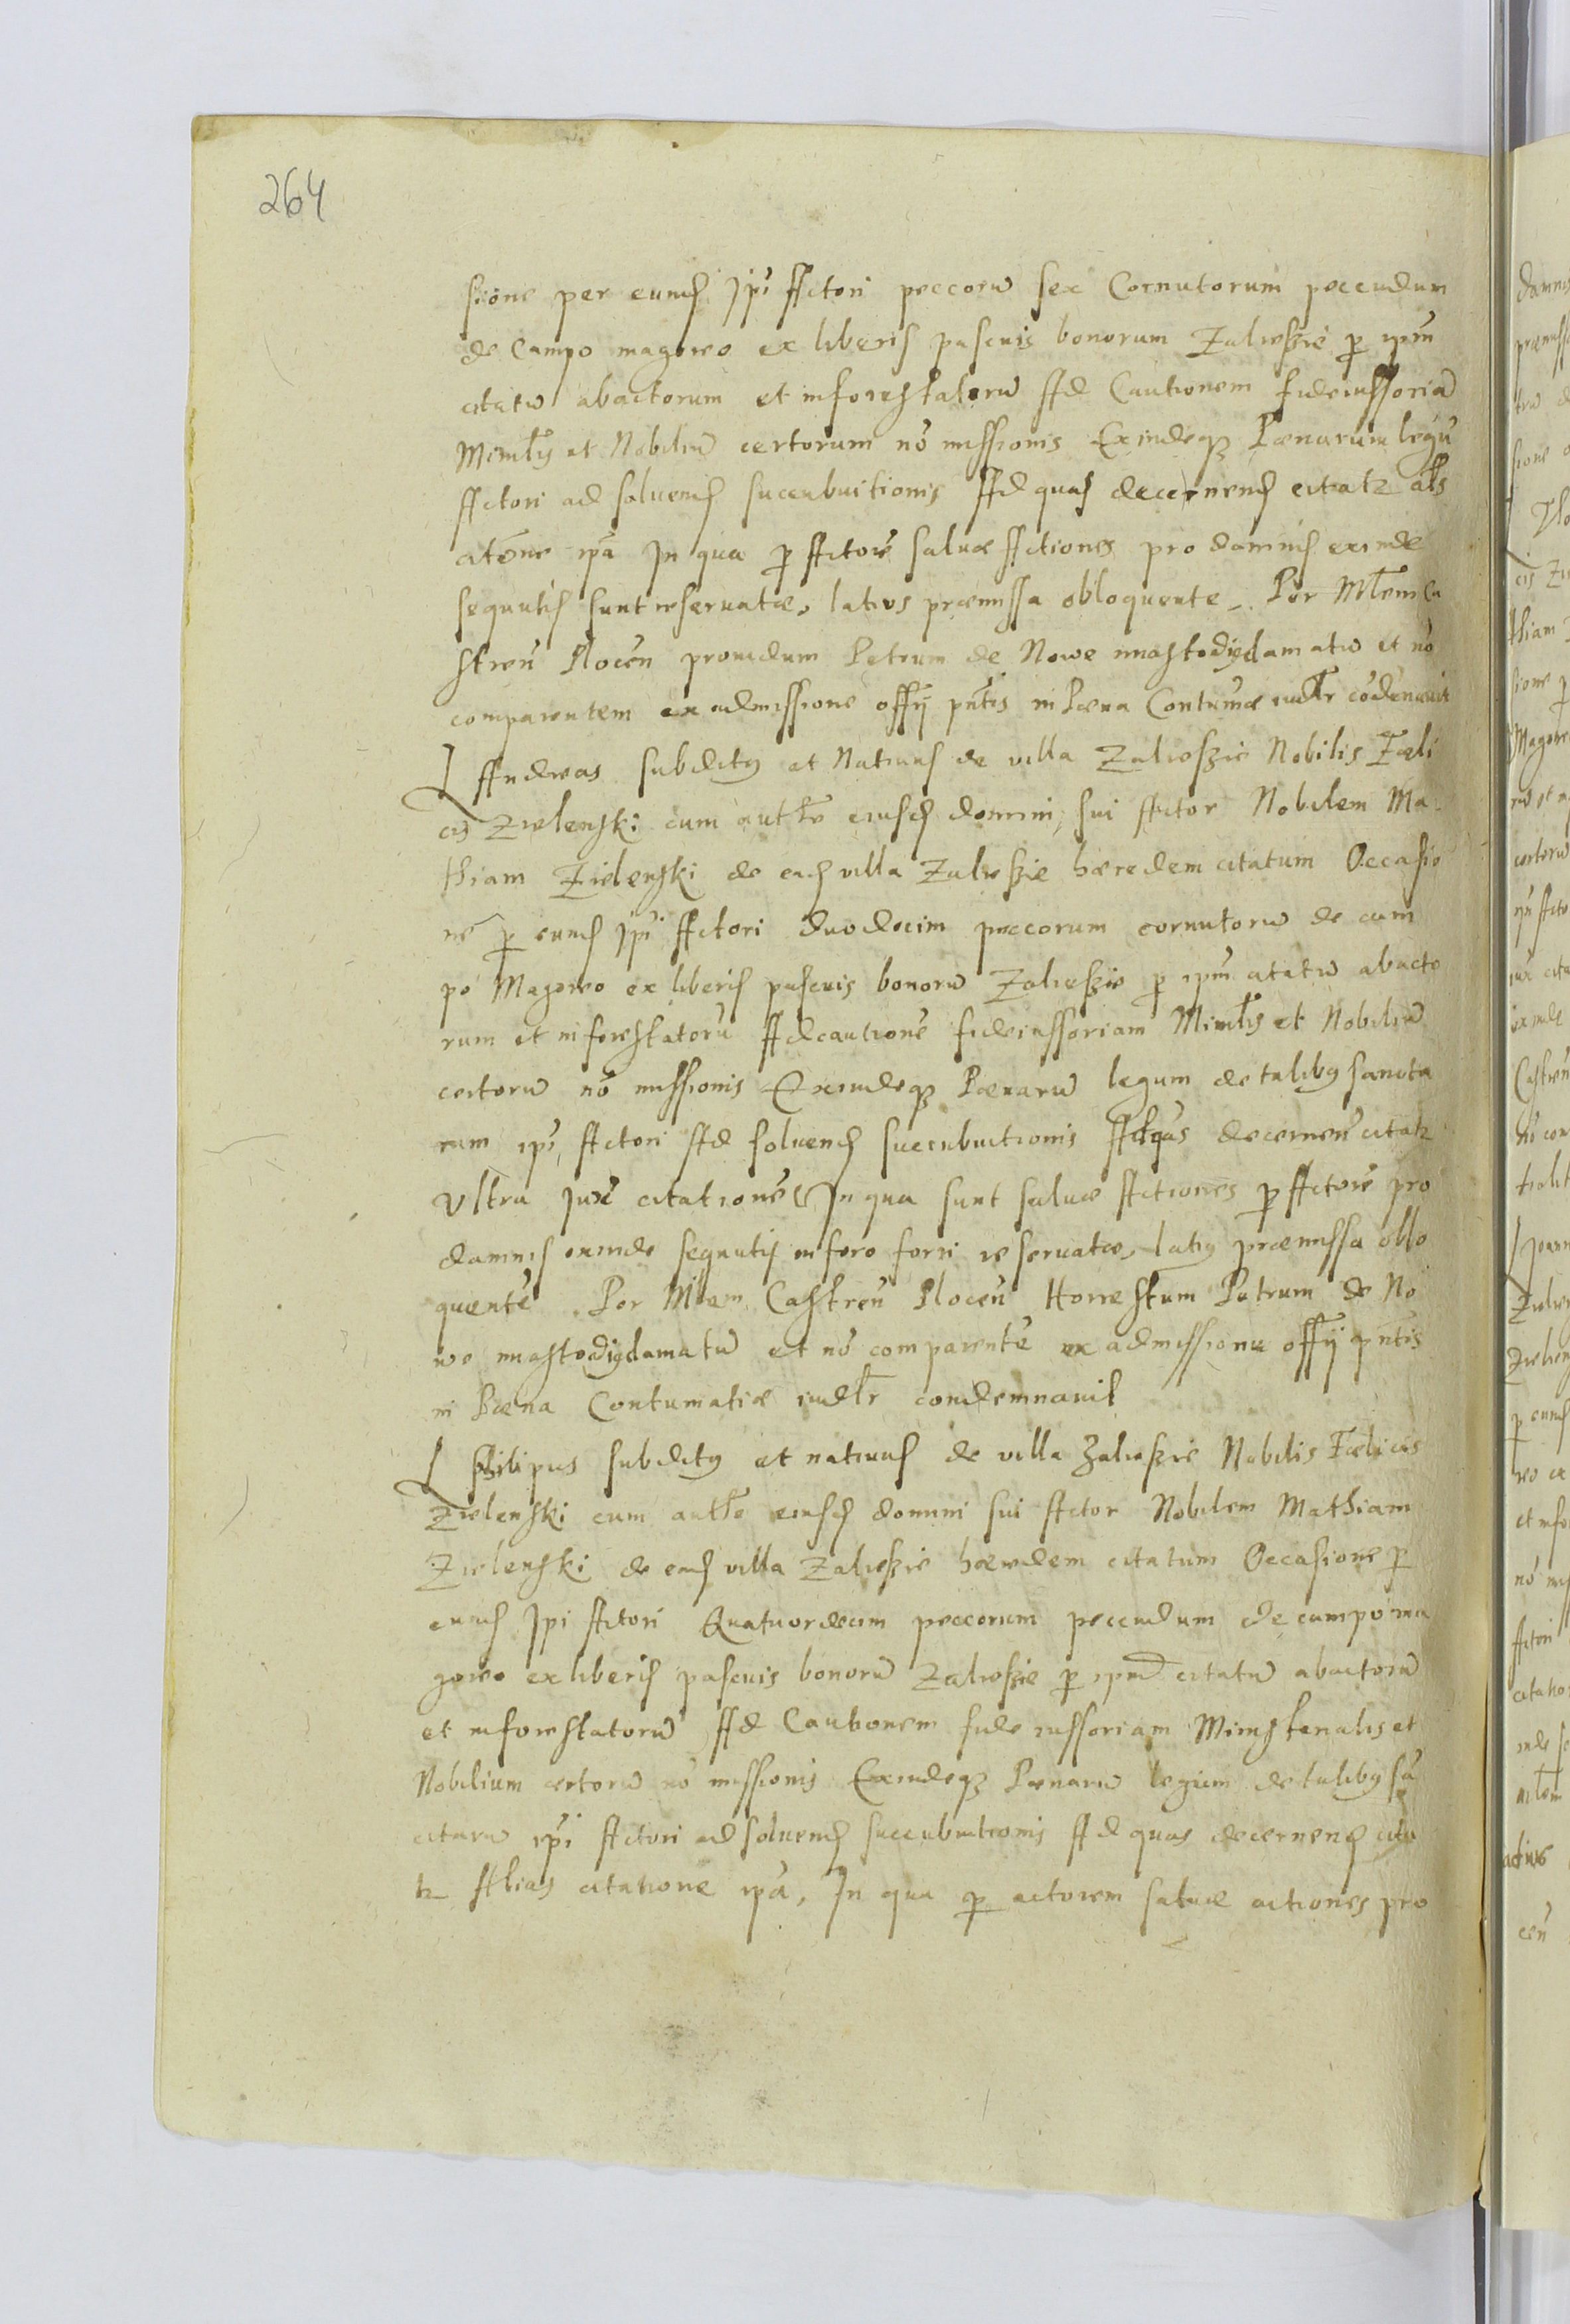 264
sione per eund Jpi Actori peccorũ sex Cornutorum pecudum
de Campo magowo ex liberis pascuis bonorum Zalieszie p ipm
citatũ abactorum et inforestatorũ Ad Cautionem fideiussoriã
Minrlis et Nobiliũ certorum nõ missionis Exindeqz Pœnarum legũ
Actori ad soluend succubuitionis Ad quas decernend citatz als
atõne ipã Jn qua p Actorẽ saluæ Actiones pro damnis exinde
sequutis sunt reseruatæ, latius præmissa obloquente. Per Mrlem Ca
streñ Ploceñ prouidum Petrum de Nowe miasto dydamatũ et nõ
comparentem ex admissione offy pntis in Pœna Contumæ iudtr cõdenauit
Andreas subditg et Natiuus de villa Zalieszie Nobilis Fœli
cis Zielenski cum auttẽ eiusd domini sui Actor Nobilem Ma
thiam Zielenski de ead villa Zalieszie hæredem citatum Occasio
nẽ p eund Jpi Actori duodecim peccorum cornutorũ de cam
po Magowo ex liberis pascuis bonorũ Zalieszie p ipm citatũ abacto
rum et inforestatorũ Ad cautionẽ fideiussoriam Minrlis et Nobiliũ
certorũ nõ missionis Exindeqz Pœnarũ legum de talibg sancita
rum ipi Actori Ad soluend succubuitionis Ad quas decerneñ citatz
Vltra Juxẽ citationẽ Jn qua sunt saluæ Actiones p Actorẽ pro
damnis exinde sequutis in foro fori reseruatæ, latig præmissa oblo
quentẽ. Per Mlem Castreñ Ploceñ Honestum Petrum de No
we miasto dydamatũ et nõ comparentẽ ex admissione offy pntis
in Pœna Contumatiæ iudtr condemnauit
Philipus subditg et natiuus de villa Zalieszie Nobilis Fœlicis
Zielenski cum auttẽ eiusd domini sui Actor Nobilem Mathiam
Zielenski de ead villa Zalieszie hæredem citatum Occasione p
eund Jpi Actori Quatuordecim peccorum pecudum de campo ma
gowo ex liberis pascuis bonorũ Zalieszie p ipm citatũ abactorũ
et inforestatorũ Ad Cautionem fideiussoriam Ministerialis et
Nobilium certorũ nõ missionis Exindeqz Pœnarũ legum de talibg sã
citarũ ipi Actori ad soluend succubuitionis Ad quas decernend cita
tz Alias citatione ipã, Jn qua p actorem saluæ actiones pro